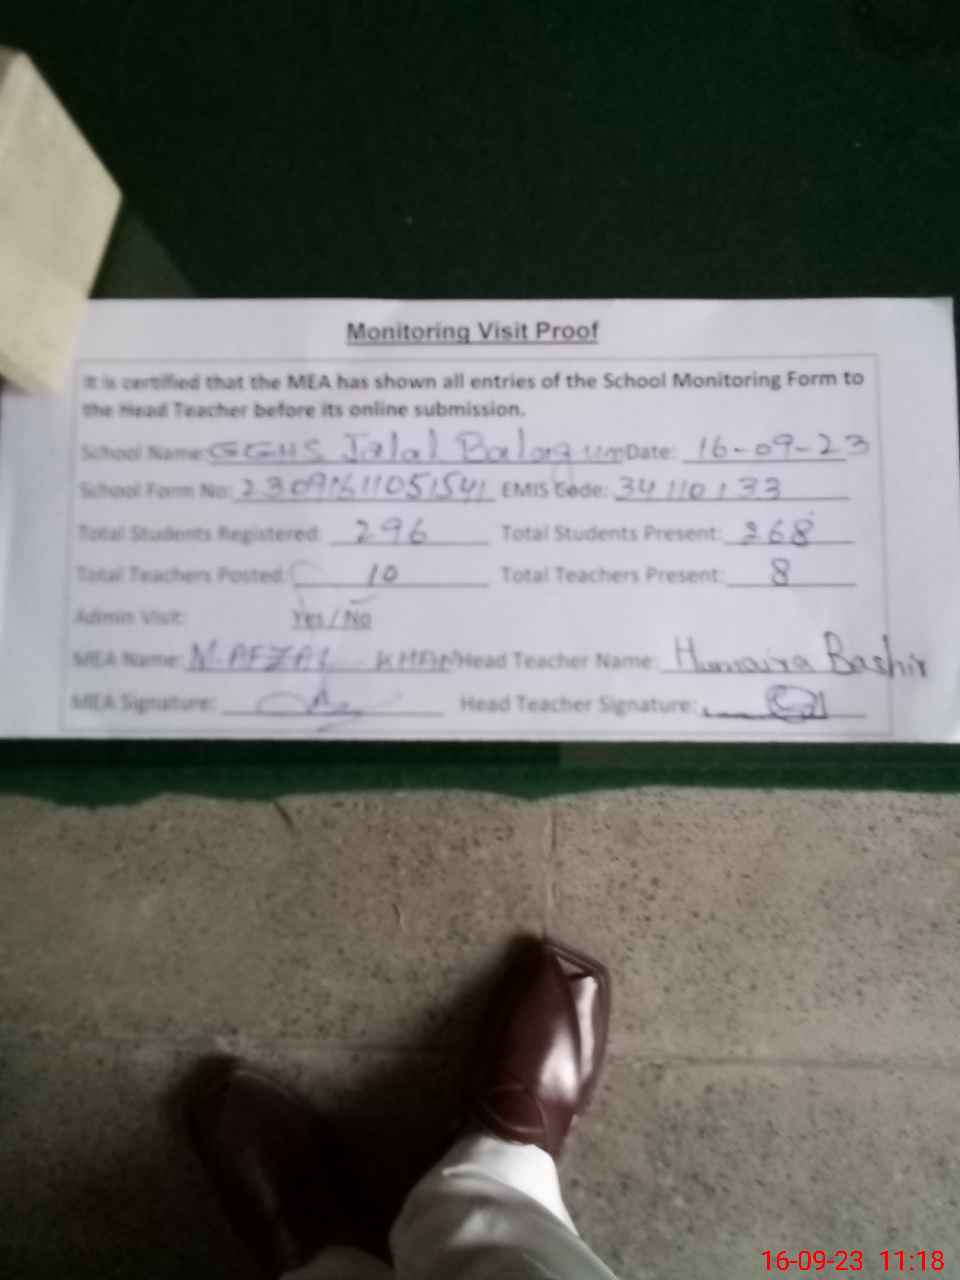 Monitoring Visit Proof
It is certified that the MEA has shown all entries of the School Monitoring Form to
the Head Teacher before its online submission.
School Name: GGHS Jalal Balagum Date: 16-09-23
School Form No: 23091611051541 EMIS Code: 34110133
Total Students Registered: 296 Total Students Present: 268
Total Teachers Posted: 10 Total Teachers Present: 8
Admin Visit: Yes / No
MEA Name: M. AFZAL KHAN Head Teacher Name: Humaira Bashir
MEA Signature: Head Teacher Signature:
16-09-23 11:18